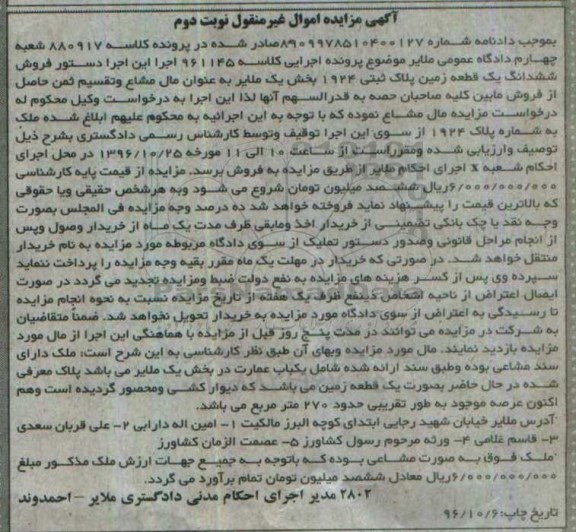 آگهی مزایده اموال غیرمنقول نوبت دوم
بموجب دادنامه شماره ۸۹۰۹۹۷۸۵۱۰۴۰۰۱۲۷ صادر شده در پرونده کلاسه ۸۸۰۹۱۷ شعبه
چهارم دادگاه عمومی ملایر موضوع پرونده اجرایی کلاسه ۹۶۱۱۴۵ اجرا این اجرا دستور فروش
ششدانگ یک قطعه زمین پلاک ثبتی ۱۹۲۴ بخش یک ملایر به عنوان مال مشاع وتقسیم ثمن حاصل
از فروش مابین کلیه صاحبان حصه به قدرالسهم آنها لذا این اجرا به درخواست وکیل محکوم له
درخواست مزایده مال مشاع نموده که با توجه به این اجرائیه به محکوم علیهم ابلاغ شده ملک
به شماره پلاک ۱۹۲۴ از سوی این اجرا توقیف وتوسط کارشناس رسمی دادگستری بشرح ذیل
توصیف وارزیابی شده ومقرراست از ساعت ۱۰ الی ۱۱ مورخه ۱۳۹۶/۱۰/۲۵ در محل اجرای
احکام شعبه ۲ اجرای احکام ملایر از طریق مزایده به فروش برسد. مزایده از قیمت پایه کارشناسی
۶/۰۰۰/۰۰۰/۰۰۰ ریال ششصد میلیون تومان شروع می شود وبه هرشخص حقیقی ویا حقوقی
که بالاترین قیمت را پیشنهاد نماید فروخته خواهد شد ده درصد وجه مزایده فی المجلس بصورت
وجه نقد یا چک بانکی تضمینی از خریدار اخذ ومابقی ظرف مدت یک ماه از خریدار وصول وپس
از انجام مراحل قانونی وصدور دستور تملیک از سوی دادگاه مربوطه مورد مزایده به نام خریدار
منتقل خواهد شد. در صورتی که خریدار در مهلت یک ماه مقرر بقیه وجه مزایده را پرداخت ننماید
سپرده وی پس از کسر هزینه های مزایده به نفع دولت ضبط ومزایده تجدید می گردد در صورت
ایصال اعتراض از ناحیه اشخاص ذینفع ظرف یک هفته از تاریخ مزایده نسبت به نحوه انجام مزایده
تا رسیدگی به اعتراض از سوی دادگاه مورد مزایده به خریدار تحویل نخواهد شد. ضمناً متقاضیان
به شرکت در مزایده می توانند در مدت پنج روز قبل از مزایده با هماهنگی این اجرا از مال مورد
مزایده بازدید نمایند. مال مورد مزایده وبهای آن طبق نظر کارشناسی به این شرح است: ملک دارای
سند مشاعی بوده وطبق سند ارائه شده شامل یکباب عمارت در بخش یک ملایر می باشد پلاک معرفی
شده در حال حاضر بصورت یک قطعه زمین می باشد که دیوار کشی ومحصور گردیده است وهم
اکنون عرصه موجود به طور تقریبی حدود ۲۷۰ متر مربع می باشد.
آدرس ملایر خیابان شهید رجایی ابتدای کوچه البرز مالکیت ۱- امین اله دارابی ۲- علی قربان سعدی
۳- قاسم غلامی ۴- ورثه مرحوم رسول کشاورز ۵- عصمت الزمان کشاورز
ملک فوق به صورت مشاعی بوده که باتوجه به جمیع جهات ارزش ملک مذکور مبلغ
۶/۰۰۰/۰۰۰/۰۰۰ ریال معادل ششصد میلیون تومان تمام برآورد می گردد.
۲۸۰۲ مدیر اجرای احکام مدنی دادگستری ملایر – احمدوند
تاریخ چاپ: ۹۶/۱۰/۶